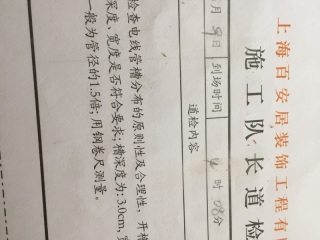 上海百安居装饰工程有
施工队长道检
月9日 到场时间 时08分
道检内容
检查电线管槽分布的原则性及合理性，开槽
深度、宽度是否符合要求；槽深度为：3.0cm，宽
一般为管径的1.5倍；用钢卷尺测量。